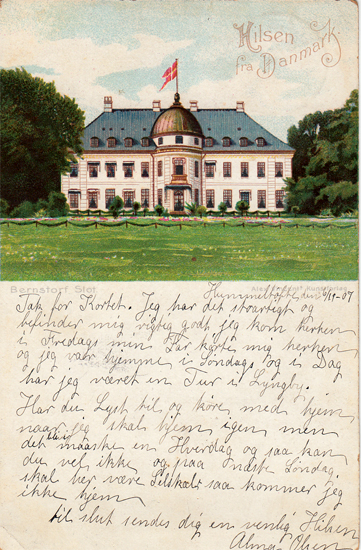 Hilsen
fra Danmark.
Bernstorf Slot.
Hummeltofte, den /11-07
Tak for Kortet. Jeg har det storartigt og
befinder mig rigtig godt jeg kom herhen
i Fredags men Far kørte mig herhen
og jeg var hjemme i Søndags og i Dag
har jeg været en Tur i Lyngby.
Har du Lyst til og køre med hjem
naar jeg skal hjem igen men
det bliver maaske en Hverdag og saa kan
du vel ikke og paa næste Søndag
skal her være Selskab saa kommer jeg
ikke hjem
til slut sendes dig en venlig Hilsen
Alma Olsen